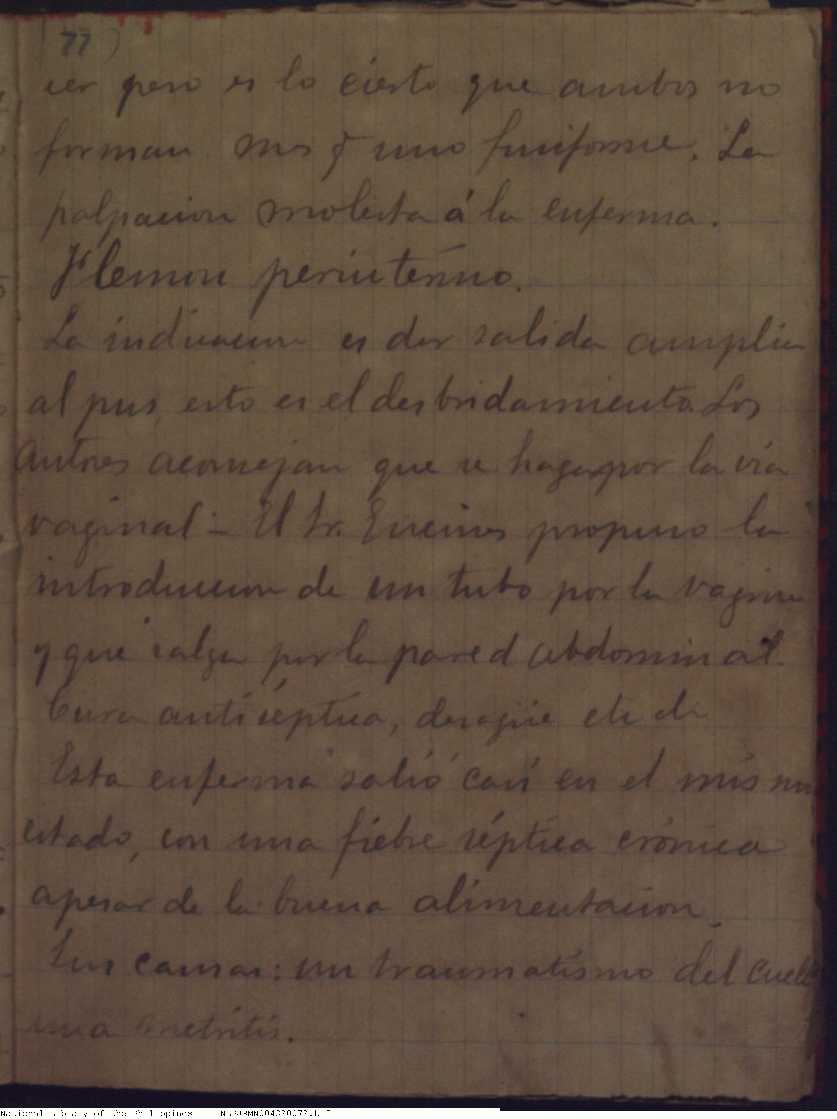 (77)
cer pero es lo cierto que ambos no
forman mas q̃ uno fusiforme. La
palpacion molesta á la enferma.
Flemon periuterino.
La indicacion es dar salida amplia
al pus, esto es el desbridamiento. Los
autores aconsejan que se haga por la via
vaginal – El Sr. Encinas propuso la
introduccion de un tubo por la vagina
y que salga por la pared abdominal.
Cura antiséptica, desagüe etc
Esta enferma salió casi en el mismo
estado, con una fiebre séptica crónica
apesar de la buena alimentacion.
Sus causas: un traumatismo del cuello
una metritis.
National Library of the Philippines